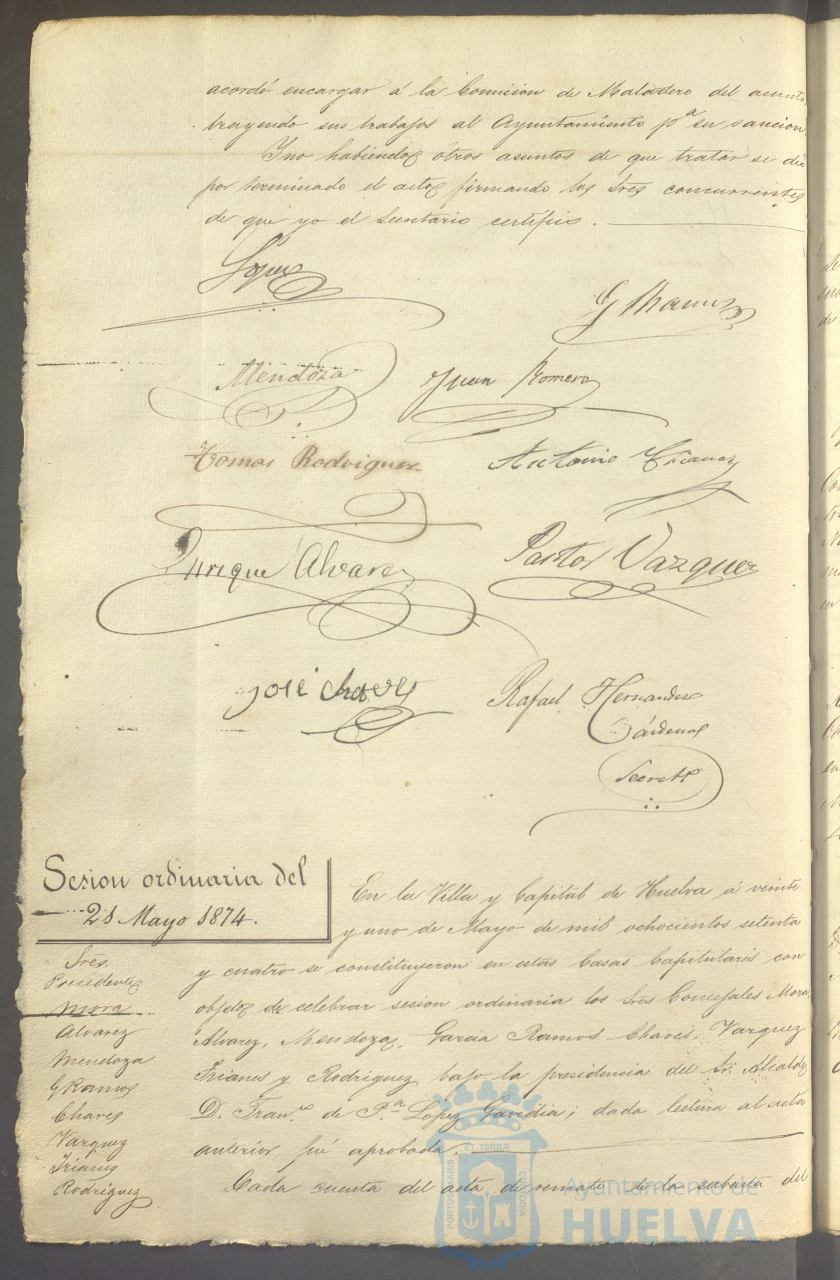 acordó encargar á la Comision de Matadero del asunto,
trayendo sus trabajos al Ayuntamiento pª su sancion
Y no habiendo ótros asuntos de que tratar se dió
por terminado el acto firmando los Sres concurrentes
de que yo el Secretario certifico.
Lopez
G Ramos
Mendoza
Juan Romero
Tomas Rodriguez
Antonio Trianes
Enrique Alvarez
Pastor Vazquez
José Chaves
Rafael Hernandez
Cárdenas
Secretº
Sesion ordinaria del
21 Mayo 1874.
En la Villa y Capital de Huelva á veinte
y uno de Mayo de mil ochocientos setenta
y cuatro se constituyeron en estas Casas Capitulares con
objeto de celebrar sesion ordinaria los Sres Concejales Mora,
Alvarez, Mendoza, Garcia Ramos Chaves, Vazquez
Trianes y Rodriguez bajo la presidencia del Sr. Alcalde
D. Franco de P.a Lopez Gavidia; dada lectura al acta
anterior fué aprobada.
Dada cuenta del acta de remate de la subasta del
Sres.
Presidente
Mora
Alvarez
Mendoza
G Ramos
Chaves
Vazquez
Trianes
Rodriguez
PORTUS MARIS
ET TERRÆ
CUSTODIA
Ayuntamiento de
HUELVA